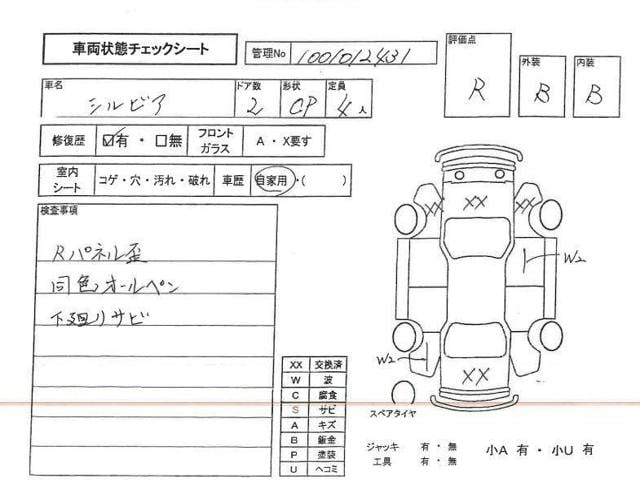 車両状態チェックシート 管理No 1001012431
評価点 R 外装 B 内装 B
車名 シルビア ドア数 2 形状 CP 定員 4人
修復歴 ☑有・☐無 フロントガラス A・X要す
室内シート コゲ・穴・汚れ・破れ 車歴 自家用・( )
検査事項
Rパネル歪
同色オールペン
下廻りサビ
XX
XX XX
W2
W2
XX
XX 交換済
W 波
C 腐食
S サビ
A キズ
B 鈑金
P 塗装
U ヘコミ
スペアタイヤ
ジャッキ 有・無
工具 有・無
小A 有・小U 有